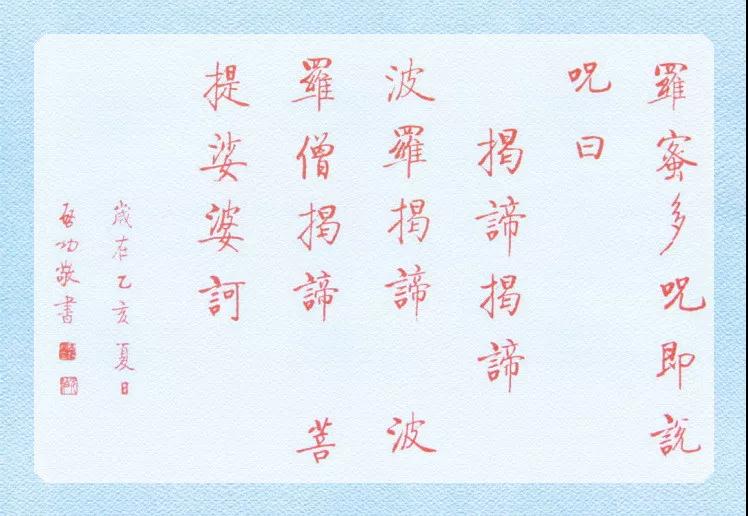 羅蜜多呪即說
呪曰
揭諦揭諦
波羅揭諦 波
羅僧揭諦 菩
提娑婆訶
歲在乙亥夏日
啓功敬書